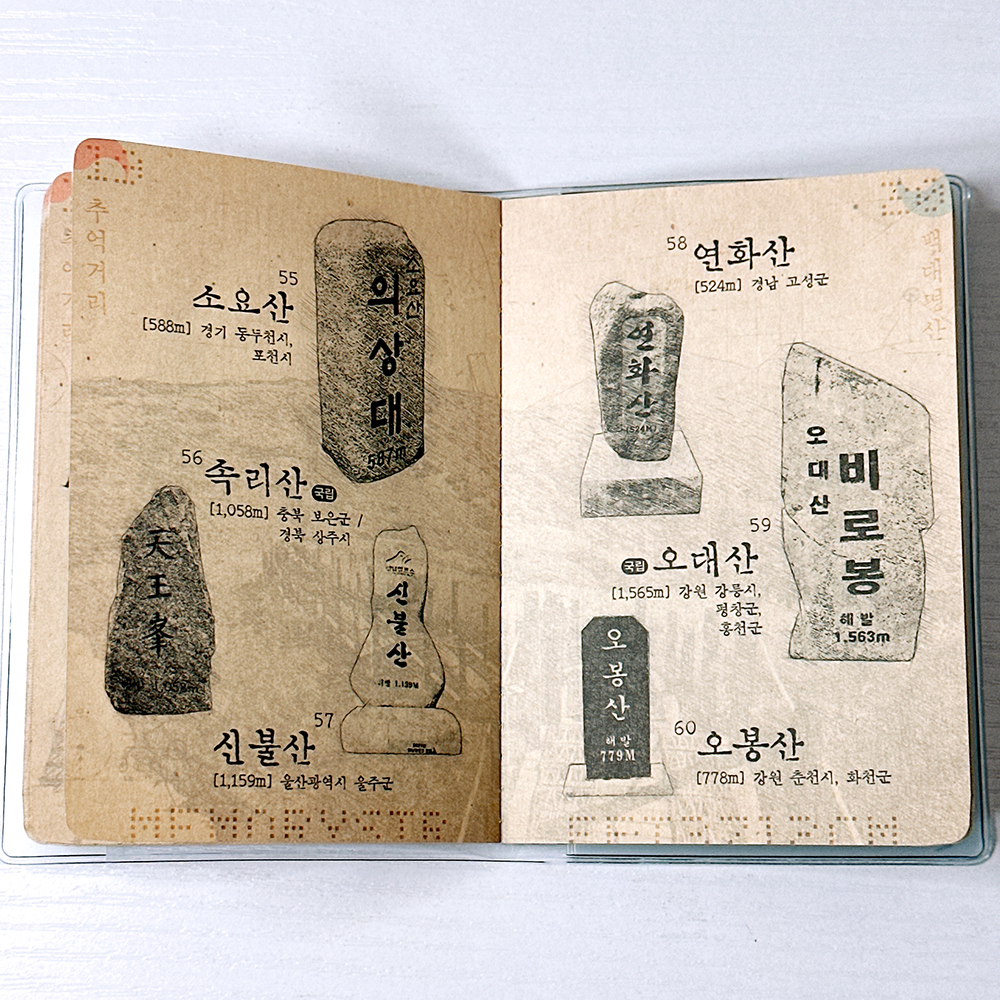 추억거리
55
소요산
[588m] 경기 동두천시,
포천시
소요산
의상대
587m
56
속리산 국립
[1,058m] 충북 보은군 /
경북 상주시
天王峯
1,058m
신불산
해발 1,159M
57
신불산
[1,159m] 울산광역시 울주군
백대명산
58
연화산
[524m] 경남 고성군
연화산
(524M)
59
국립 오대산
[1,565m] 강원 강릉시,
평창군,
홍천군
오대산
비로봉
해발
1,563m
오봉산
해발
779M
60
오봉산
[778m] 강원 춘천시, 화천군